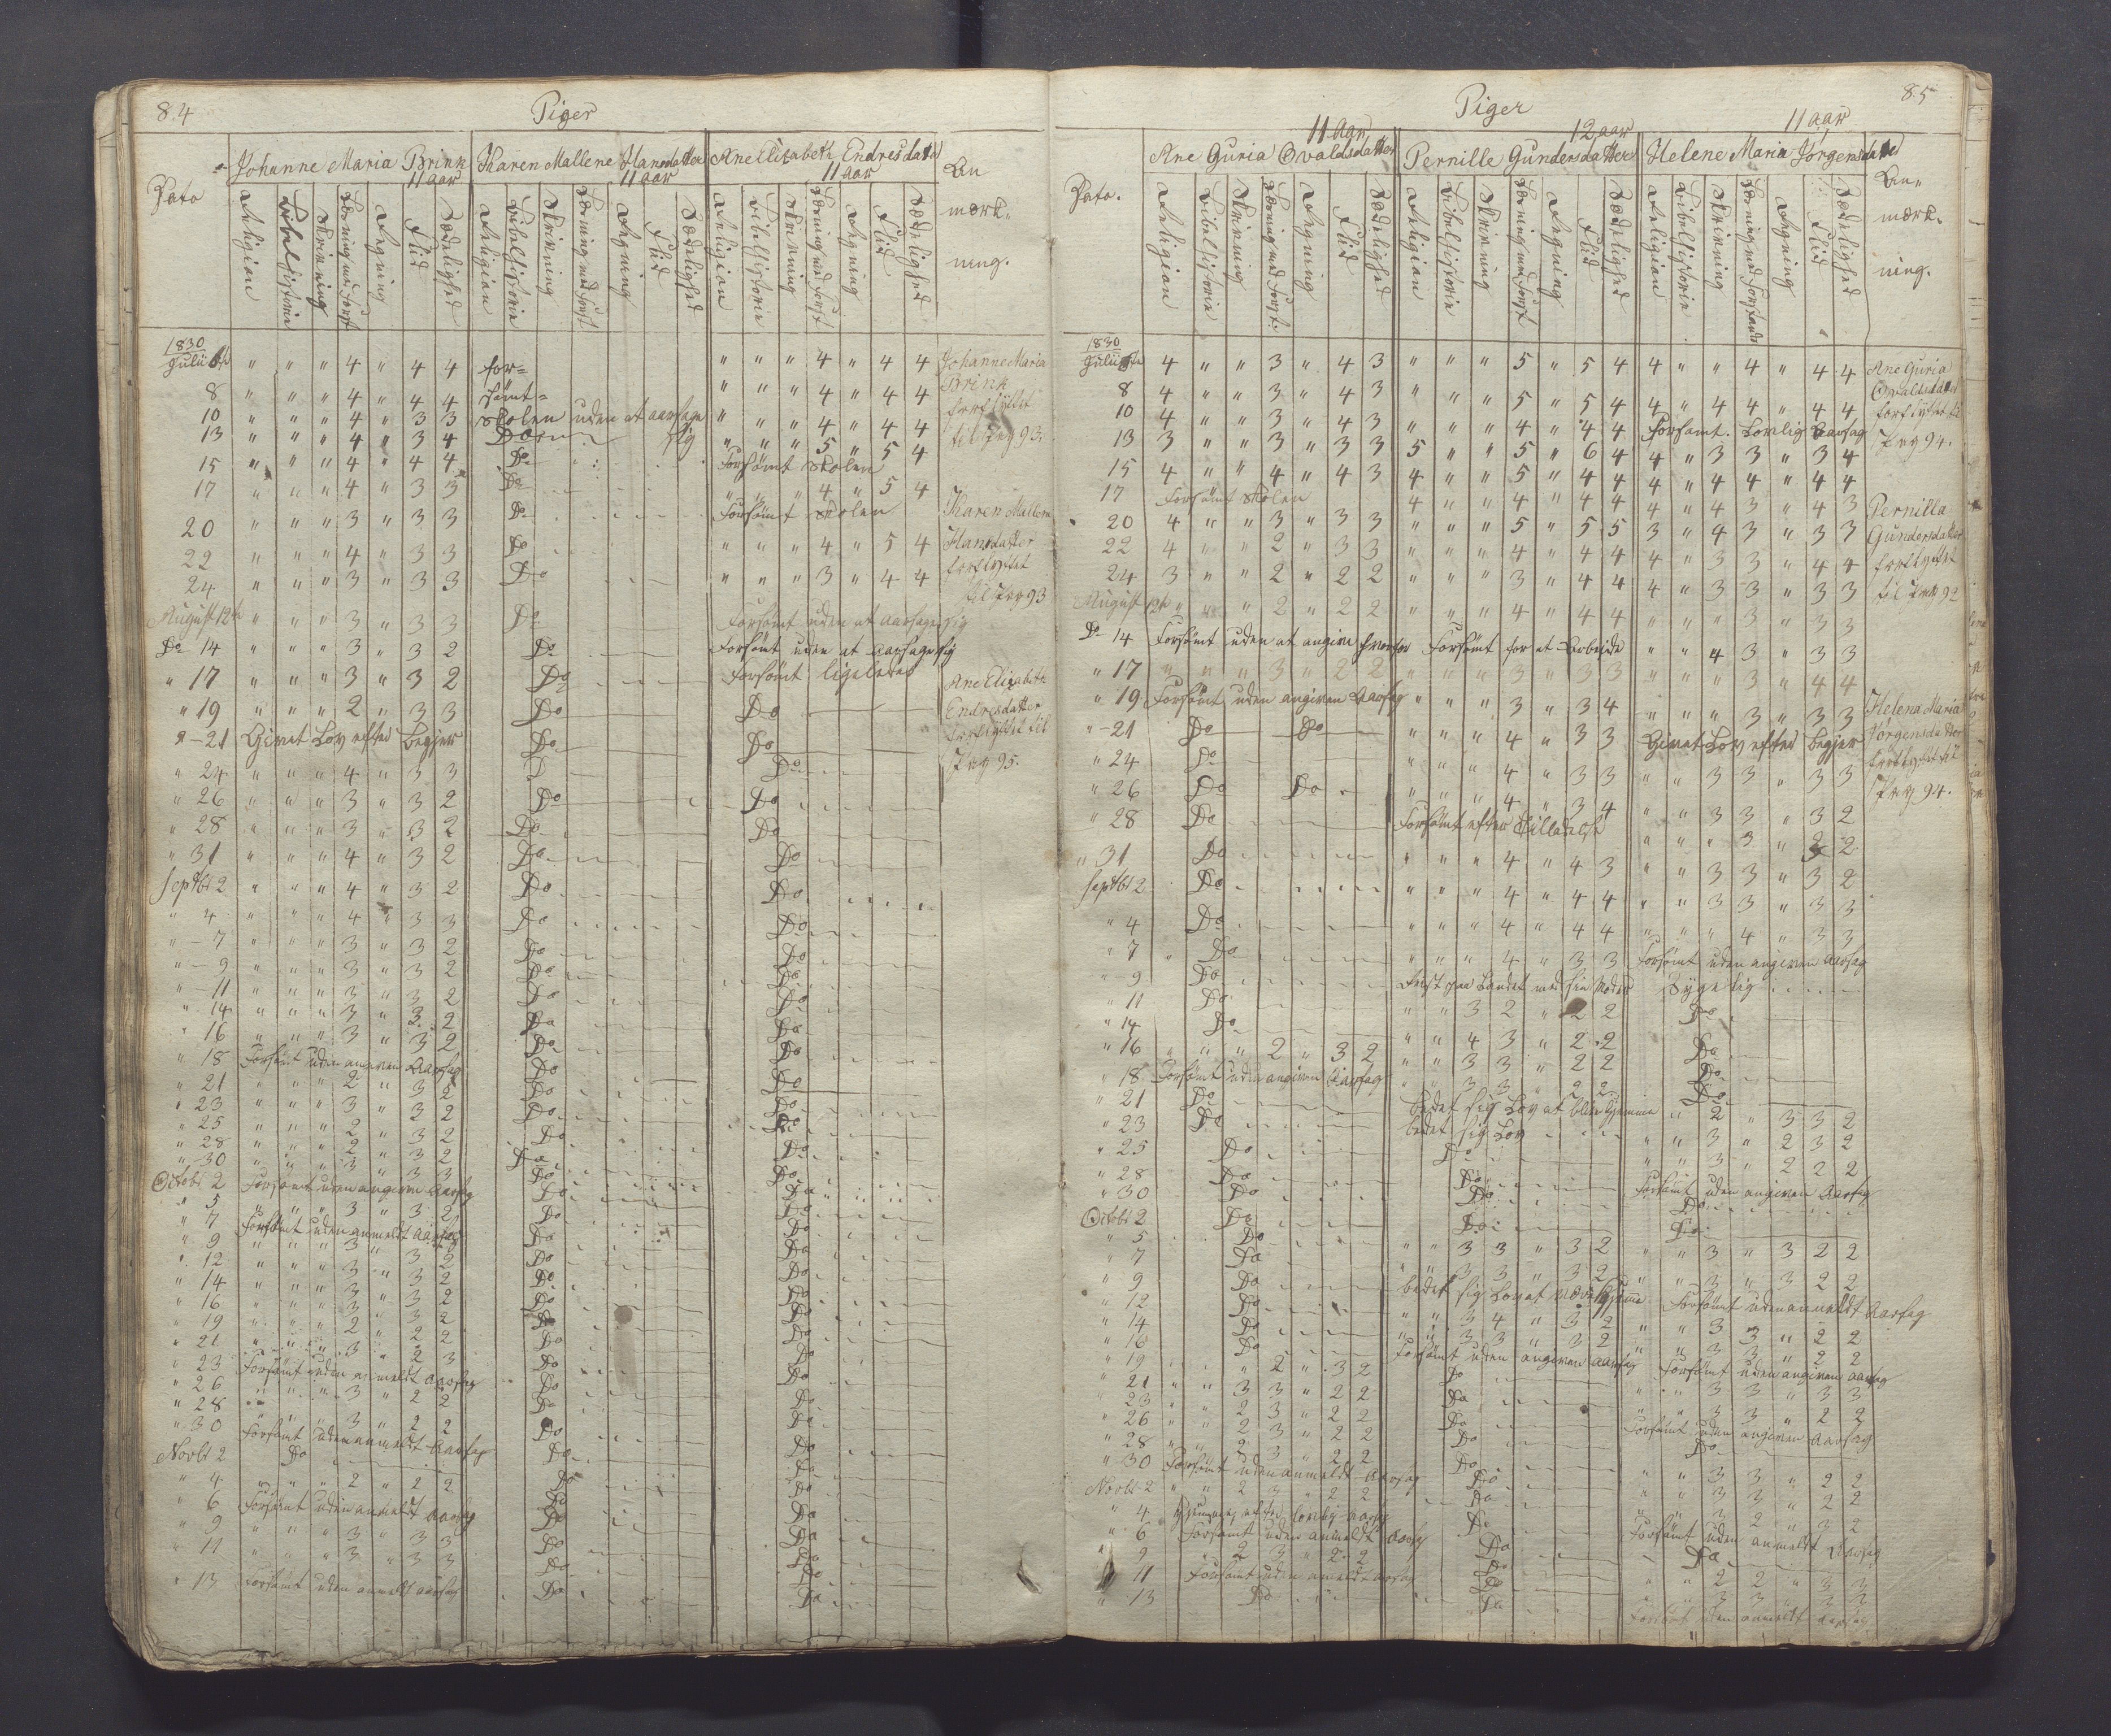 84
Piger
Johanne Maria Brink Karen Mallene Hansdatter Ane Elisabeth Endresdatter An
11 aar 11 aar 11 aar
Dato mærk„
ning.
Religion Bibelhistorie Skrivning Læsning med Forst Regning Flid Sædelighed Religion Bibelhistorie Skrivning Læsning med Forst Regning Flid Sædelighed Religion Bibelhistorie Skrivning Læsning med Forst Regning Flid Sædelighed
1830
Julii 6te „ „ „ 4 „ 4 4 for= „ „ „ 4 „ 4 4 Johanne Maria
8 „ „ „ 4 „ 4 4 sömt= „ „ „ 4 „ 4 4 Brink
10 „ „ „ 4 „ 3 3 Skolen uden at aarsage sig „ „ „ 4 „ 4 4 forflyttet
13 „ „ „ 4 „ 3 4 Do „ „ „ 5 „ 5 4 til Pag 93.
15 „ „ „ 4 „ 4 4 Do Forsömt Skolen
17 „ „ „ 4 „ 3 3 Do „ „ „ 4 „ 5 4
20 „ „ „ 3 „ 3 3 Do Forsömt Skolen Karen Mallene
22 „ „ „ 4 „ 3 3 Do „ „ „ 4 „ 5 4 Hansdatter
24 „ „ „ 3 „ 3 3 Do „ „ „ 3 „ 4 4 forflyttet
til Pag 93
August 12te „ „ „ 3 „ 3 3 Do Forsömt uden at aarsage sig
Do 14 „ „ „ 3 „ 3 2 Do Forsömt uden at aarsage sig
„ 17 „ „ „ 3 „ 3 2 Do Forsömt ligeledes Ane Elisabeth
„ 19 „ „ „ 2 „ 3 3 Do Do Endresdatter
„ 21 Givet Lov efter Begjer Do Do forflyttet til
„ 24 „ „ „ 4 „ 3 3 D Do Pag 95.
„ 26 „ „ „ 3 „ 3 2 Do Do
„ 28 „ „ „ 3 „ 3 2 Do Do
„ 31 „ „ „ 4 „ 3 2 Do Do
Septbr 2 „ „ „ 4 „ 3 2 Do Do
„ 4 „ „ „ 4 „ 3 3 Do Do
„ 7 „ „ „ 3 „ 3 2 Do Do
„ 9 „ „ „ 3 „ 3 2 Do Do
„ 11 „ „ „ 3 „ 3 2 Do Do
„ 14 „ „ „ 3 „ 3 2 Do Do
„ 16 „ „ „ 3 „ 3 2 Do Do
„ 18 Forsömt uden angiven Aarsag Do Do
„ 21 „ „ „ 2 „ 3 2 Do Do
„ 23 „ „ „ 3 „ 3 2 Do Do
„ 25 „ „ „ 2 „ 3 2 Do Do
„ 28 „ „ „ 2 „ 3 2 Do Do
„ 30 „ „ „ 3 „ 3 3 Do Do
Octobr 2 Forsömt uden angiven Aarsag Do Do
„ 5 „ „ „ 3 „ 3 2 Do Do
„ 7 Forsömt uden anmeldt Aarsag Do Do
„ 9 „ „ „ 3 „ 3 2 Do Do
„ 12 „ „ „ 3 „ 3 2 Do Do
„ 14 „ „ „ 3 „ 3 2 Do Do
„ 16 „ „ „ 3 „ 3 2 Do Do
„ 19 „ „ „ 2 „ 2 2 Do Do
„ 21 „ „ „ 3 „ 2 3 Do Do
„ 23 Forsömt uden anmeldt Aarsag Do Do
„ 26 „ „ „ 3 „ 2 2 Do Do
„ 28 „ „ „ 3 „ 2 2 Do Do
„ 30 Forsömt uden anmeldt Aarsag Do Do
Novbr 2 Do Do Do
„ 4 „ „ „ 2 „ 2 2 Do Do
„ 6 Forsömt uden anmeldt Aarsag Do Do
„ 9 „ „ „ 3 „ 3 3 Do Do
„ 11 „ „ „ 3 „ 3 3 Do Do
„ 13 Forsömt uden anmeldt Aarsag Do Do
85
Piger
11 Aar 12 aar 11 aar
Ane Guria Osvaldsdatter Pernille Gundersdatter Helene Maria Jörgensdatter
Dato. An„
mærk„
ning.
Religion Bibelhistorie Skrivning Læsning med Forst. Regning Flid Sædelighed Religion Bibelhistorie Skrivning Læsning med Forst Regning Flid Sædelighed Religion Bibelhistorie Skrivning Læsning med Forstand Regning Flid Sædelighed
1830
Julii 6te 4 „ „ 3 „ 4 3 „ „ „ 5 „ 5 4 4 „ „ 4 „ 4 4 Ane Guria
8 4 „ „ 3 „ 4 3 „ „ „ 5 „ 5 4 4 „ 4 4 „ 4 4 Osvaldsdatter
10 4 „ „ 3 „ 4 3 „ „ „ 4 „ 4 4 Forsömt. Lovlig Aarsag forflyttet til
13 3 „ „ 3 „ 3 3 5 „ „ 5 „ 6 4 4 „ 3 3 „ 3 4 Pag 94.
15 4 „ „ 4 „ 4 3 4 „ „ 5 „ 4 4 4 „ 4 4 „ 4 4
17 Forsömt Skolen 4 „ „ 4 „ 4 4 4 „ 4 3 „ 4 3 Pernilla
20 4 „ „ 3 „ 3 3 „ „ „ 5 „ 5 5 3 „ 4 3 „ 3 3 Gundersdatter
22 4 „ „ 2 „ 3 3 „ „ „ 4 „ 4 4 4 „ 3 3 „ 4 4 forflyttet
24 3 „ „ 2 „ 2 2 „ „ „ 3 „ 4 4 4 „ 3 3 „ 3 3 til Pag 92
August 12te „ „ „ 2 „ 2 2 „ „ „ 4 „ 4 4 „ „ „ 3 „ 3 3
Do 14 Forsömt uden at angive hvorfor Forsömt for at Arbeide „ „ 4 3 „ 3 3
„ 17 „ „ „ 3 „ 2 2 „ „ „ 3 „ 3 3 „ „ „ 3 „ 4 4
„ 19 Forsömt uden angiven Aarsag „ „ „ 3 „ 3 4 „ „ „ 3 „ 3 3 Helena Maria
„ 21 Do Do „ „ „ 4 „ 3 3 Givet Lov efter Begjer Jörgensdatter
„ 24 Do „ „ „ 4 „ 3 3 „ „ 3 3 „ 3 3 forflyttet til
„ 26 Do Do „ „ „ 4 „ 3 4 „ „ 3 3 „ 3 2 Pag 94.
„ 28 Do Forsömt efter Tilladelse „ „ „ 3 „ 2 2
„ 31 Do „ „ „ 4 „ 4 3 „ „ 3 3 „ 3 2
Septbr 2 Do „ „ „ 4 „ 4 4 „ „ 3 3 „ 3 3
„ 4 Do „ „ „ 4 „ 4 4 „ „ „ 4 „ 3 3
„ 7 Do „ „ „ 4 „ 3 3 Forsömt uden angiven Aarsag
„ 9 Do Reist paa Landet med sin Moder Sygelig
„ 11 Do „ „ 3 2 „ 2 2 Do
„ 14 Do „ „ 4 3 „ 2 2 Do
„ 16 „ „ „ 2 „ 3 2 „ „ 3 3 „ 2 2 Do
„ 18 Forsömt uden angiven Aarsag „ „ 3 3 „ 2 2 Do
„ 21 Do bedet sig Lov at blive hjemme „ „ 2 „ 3 3 2
„ 23 Do bedet sig Lov „ „ 3 „ 2 3 2
„ 25 Do Do „ „ 3 „ 2 2 2
„ 28 Do Do Forsömt uden angiven Aarsag
„ 30 Do Do Do
Octobr 2 Do Do Do
„ 5 Do „ „ 3 3 „ 3 2 „ „ 3 „ 3 2 2
„ 7 Do „ „ 3 3 „ 3 2 „ „ 3 „ 3 2 2
„ 9 Do bedet sig Lov at være hjemme Forsömt uden anmeldt Aarsag
„ 12 Do „ „ 3 4 „ 3 2 „ „ 3 3 „ 2 2
„ 14 Do „ „ 3 3 „ 3 2 „ „ 3 3 „ 2 2
„ 16 Do Forsömt uden angiven Aarsag Forsömt uden angiven Aarsag
„ 19 „ „ „ 2 „ 3 2 Do „ „ 3 3 „ 3 3
„ 21 „ „ 3 3 „ 2 2 Do „ „ 3 3 „ 2 2
„ 23 „ „ 2 3 „ 2 2 Do Forsömt uden angiven Aarsag
„ 26 „ „ 2 3 „ 2 2 Do Do
„ 28 „ „ 2 3 „ 2 2 Do „ „ 3 3 „ 2 2
„ 30 Forsömt uden anmeldt Aarsag Do „ „ 3 3 „ 2 2
Novbr 2 „ „ 2 3 „ 2 2 Do „ „ 3 2 „ 3 2
„ 4 lovlig Aarsag Do Forsömt uden anmeldt Aarsag
„ 6 Forsömt uden anmeldt Aarsag Do Do
„ 9 „ „ 2 3 „ 2 2 Do „ „ 2 2 „ 3 3
„ 11 Forsömt uden anmeldt Aarsag Do „ „ 3 3 „ 3 3
„ 13 Do Do Forsömt uden anmeldt Aarsag